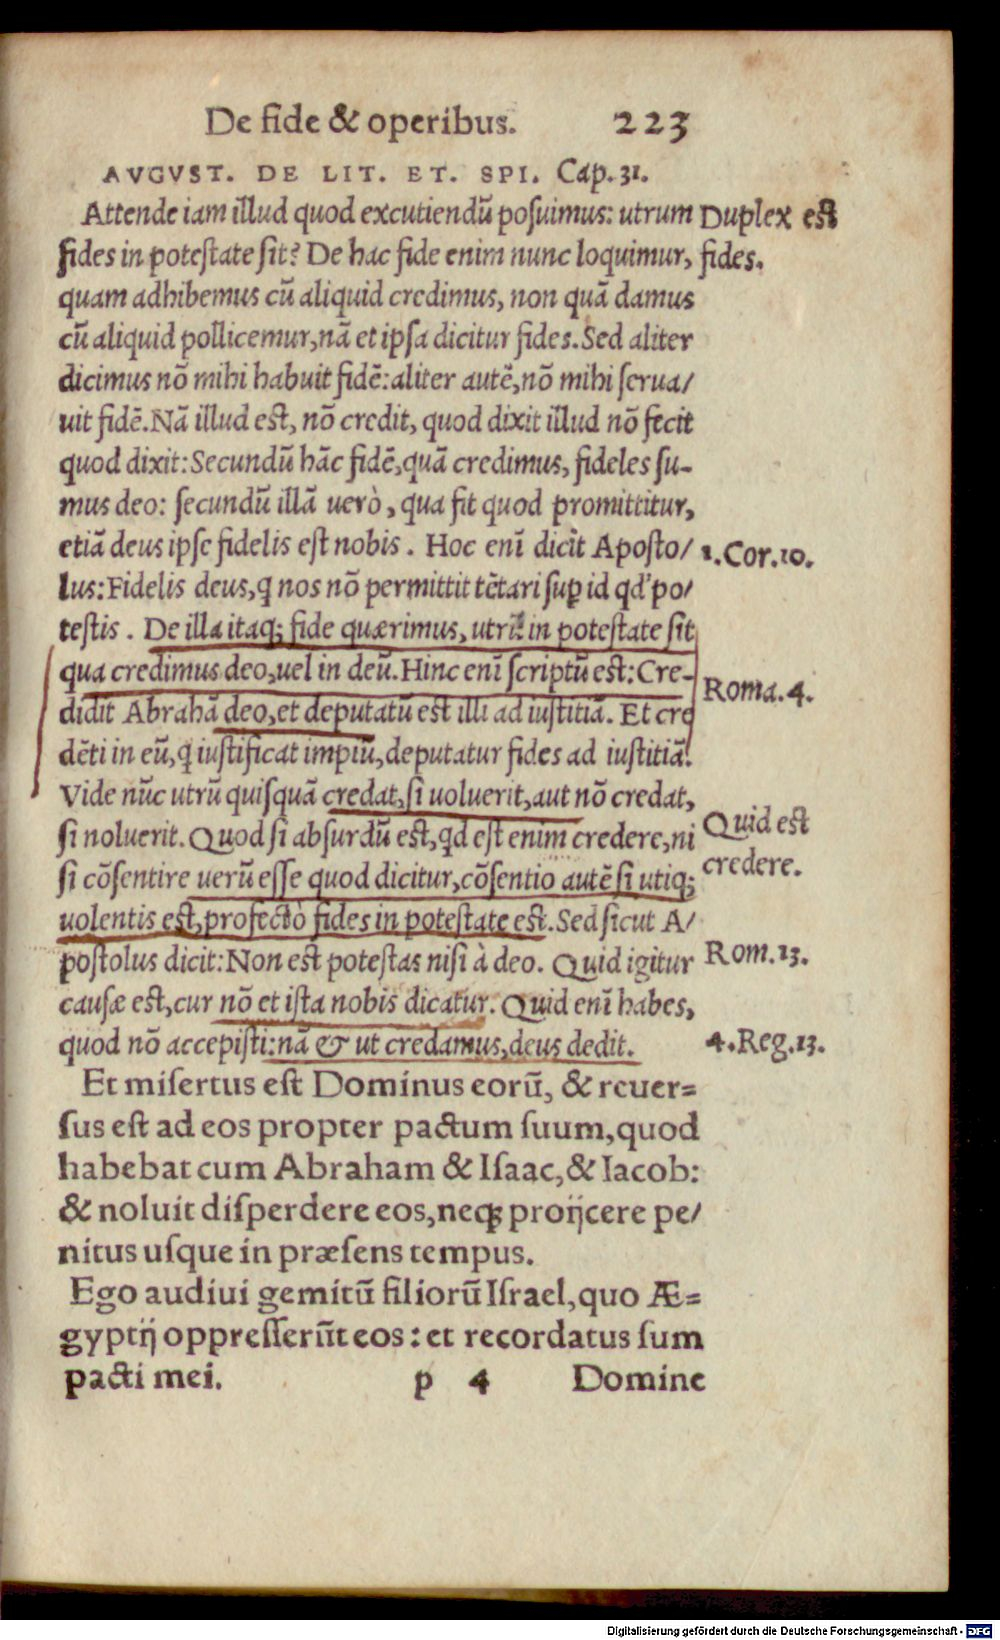 De fide & operibus. 223
AVGVST. DE LIT. ET. SPI. Cap. 31.
Attende iam illud quod excutiendū posuimus: utrum
Duplex est
fides in potestate sit? De hac fide enim nunc loquimur,
fides.
quam adhibemus cū aliquid credimus, non quā damus
cū aliquid pollicemur, nā et ipsa dicitur fides. Sed aliter
dicimus nō mihi habuit fidē: aliter autē, nō mihi serua/
uit fidē. Nā illud est, nō credit, quod dixit illud nō fecit
quod dixit: Secundū hāc fidē, quā credimus, fideles su-
mus deo: secundū illā uerò, qua fit quod promittitur,
etiā deus ipse fidelis est nobis. Hoc enī dicit Aposto/
1. Cor. 10.
lus: Fidelis deus, q̄ nos nō permittit tētari sup id qd' po/
testis. De illa itaq; fide quærimus, utrū in potestate sit
qua credimus deo, uel in deū. Hinc enī scriptū est: Cre-
Roma. 4.
didit Abrahā deo, et deputatū est illi ad iustitiā. Et cre
dēti in eū, q̄ iustificat impiū, deputatur fides ad iustitiā.
Vide nūc utrū quisquā credat, si uoluerit, aut nō credat,
Quid est
si noluerit. Quod si absurdū est, qd est enim credere, ni
credere.
si cōsentire uerū esse quod dicitur, cōsentio autē si utiq;
uolentis est, profectò fides in potestate est. Sed sicut A/
postolus dicit: Non est potestas nisi à deo. Quid igitur
Rom. 13.
causæ est, cur nō et ista nobis dicatur. Quid enī habes,
quod nō accepisti: nā & ut credamus, deus dedit.
4. Reg. 13.
Et misertus est Dominus eorū, & reuer=
sus est ad eos propter pactum suum, quod
habebat cum Abraham & Isaac, & Iacob:
& noluit disperdere eos, neq; proijcere pe/
nitus usque in præsens tempus.
Ego audiui gemitū filiorū Israel, quo Æ=
gyptij oppresserūt eos: et recordatus sum
pacti mei. p 4 Domine
Digitalisierung gefördert durch die Deutsche Forschungsgemeinschaft - DFG